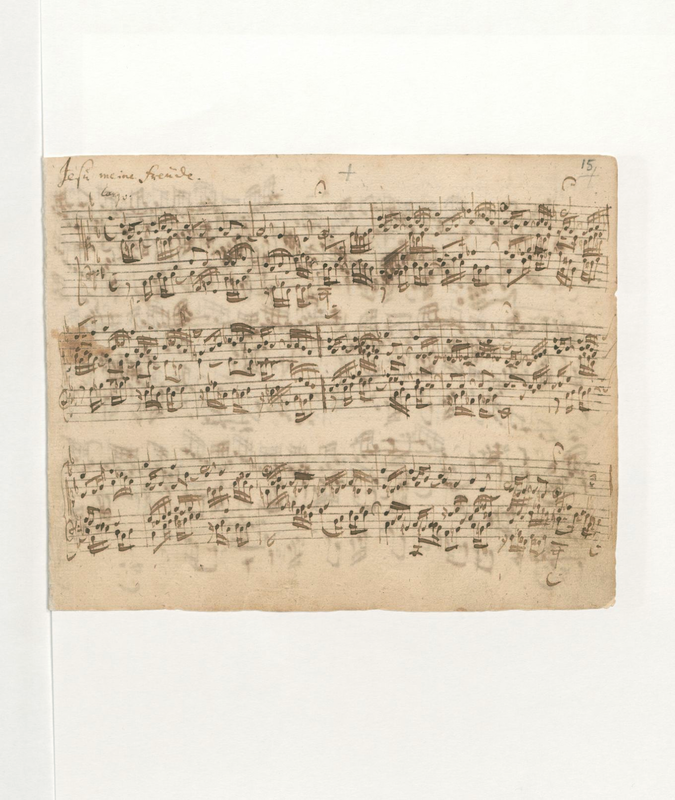 Jesu meine Freüde.
Largo
15